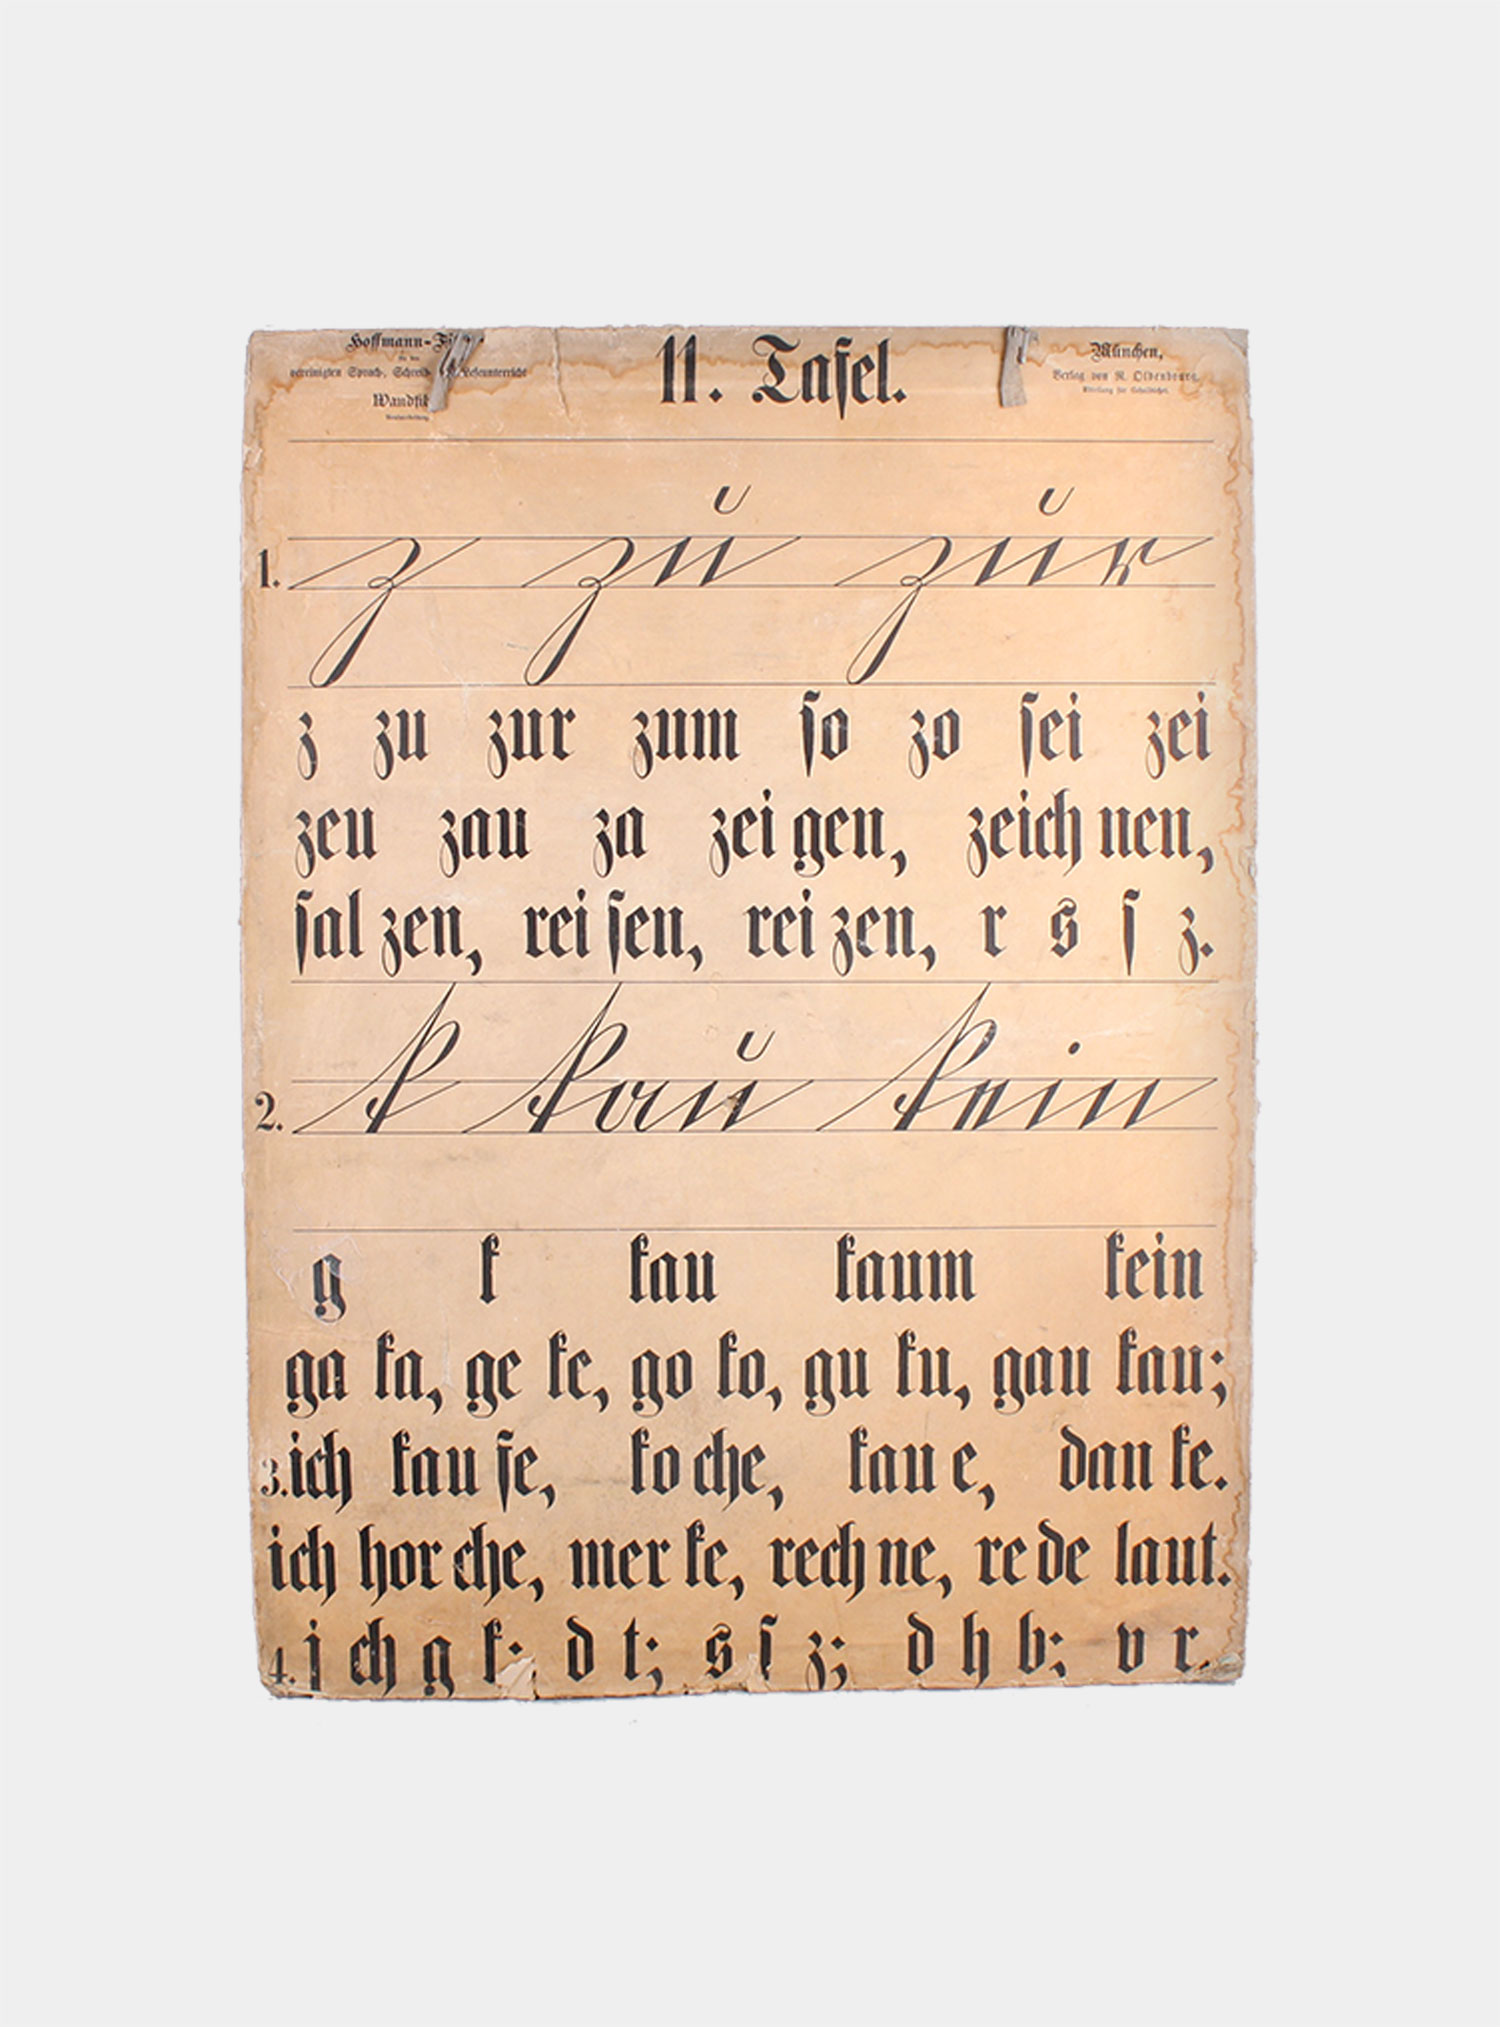 Hoffmann-
für den
vereinigten Sprach-, Schreib- Leseunterricht
Neubearbeitung.
11. Tafel.
München,
Verlag von R. Oldenbourg.
Abteilung für Schulbücher.
1. z zu zur
z zu zur zum ſo zo ſei zei
zeu zau za zei gen, zeich nen,
ſal zen, rei ſen, rei zen, r s ſ z.
2. k kau kein
g k kau kaum kein
ga ka, ge ke, go ko, gu ku, gau kau;
3. ich kau fe, ko che, kau e, dan ke.
ich hor che, mer ke, rech ne, re de laut.
4. j ch g k; d t; s ſ z; d h b; v r.